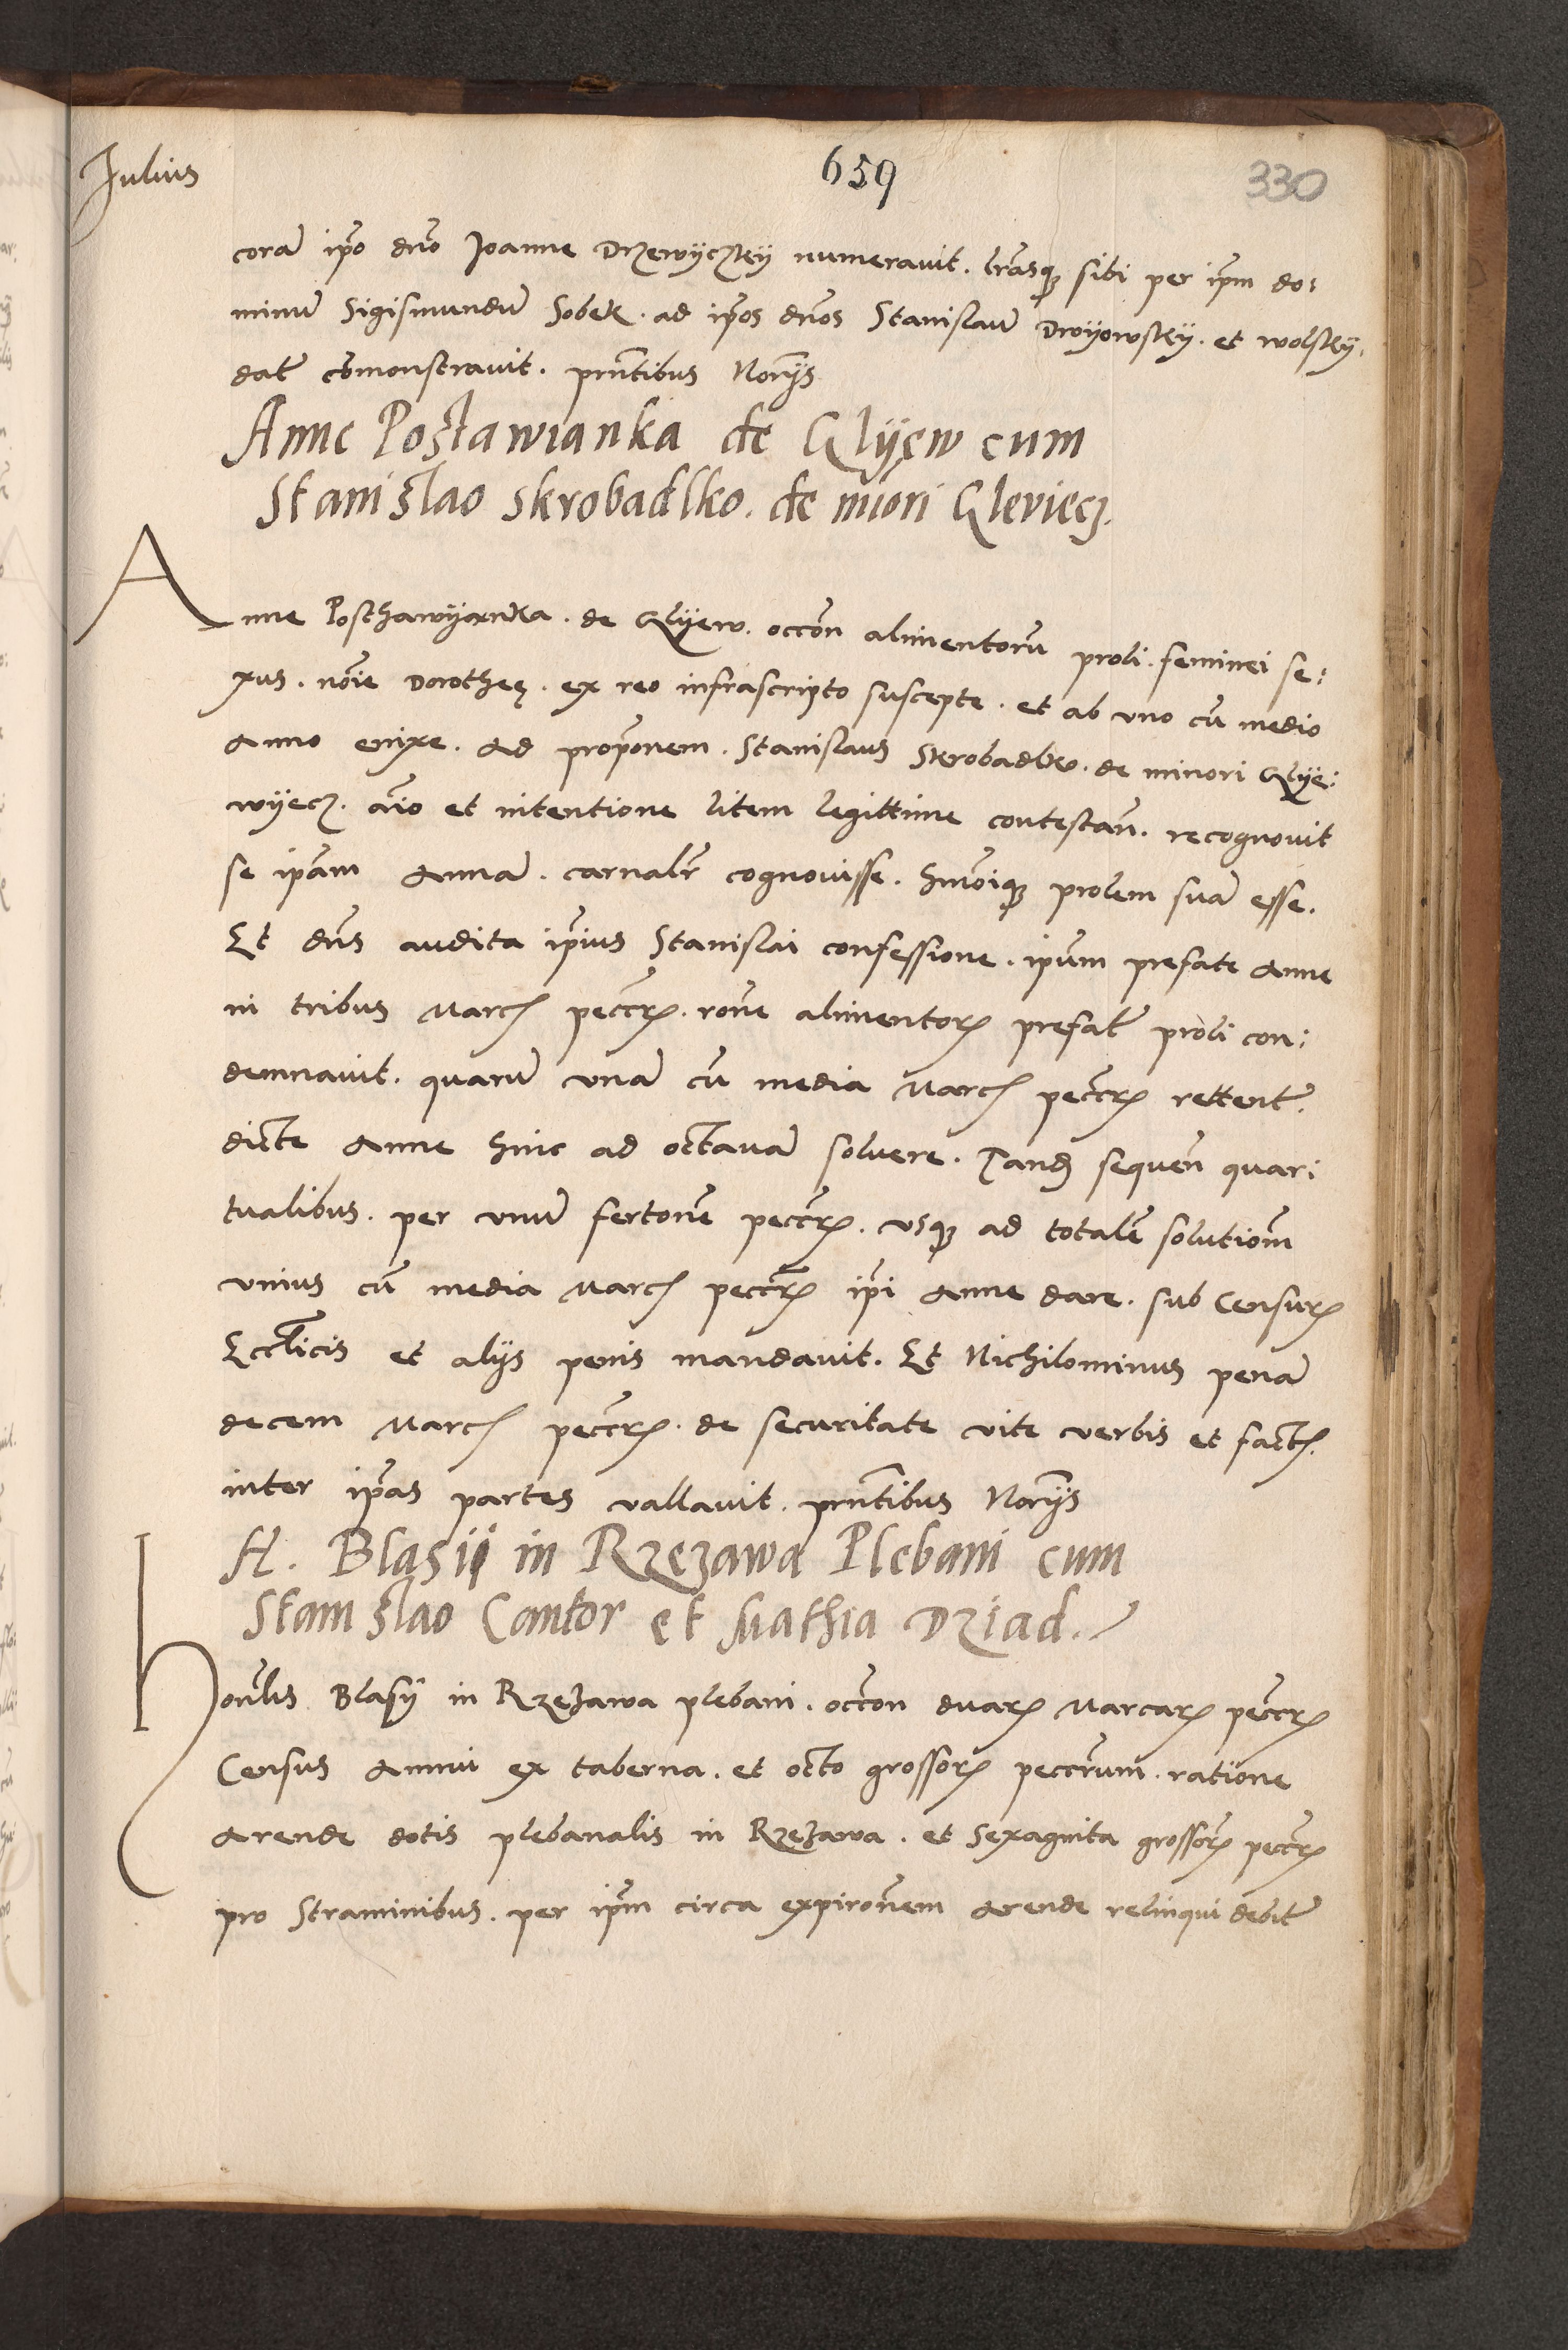 Julius
659
330
corā ipō dnō Joanne Drzewyczky numeravit. lrāsq; sibi per ipm̄ do:
minū Sigismundū Sobek. ad ipōs dnōs Stanislaū Drvyowsky. et wolsky.
dat̄ cōmonstravit. pn̄tibus Norys
Anne Postawianka de Glyew cum
Stanislao Skrobadlko. de mīori Gleviecz.
Anne Posthawyanka. de Glyew. occōn alimentorū proli. feminei se:
xus. nōie Dorotheę. ex reo infrascripto suscepte. et ab uno cū medio
Anno enixe. Ad propōnem. Stanislaus Skrobadlko. de minori Glye:
wyecz. aīo et intentione litem legittime contestan̄. recognovit
se ipām Annā. carnalr̄ cognovisse. hmōiq; prolem suā esse.
Et dns audita ipīus Stanislai confessione. ipum prefate Anne
in tribus Marc̄ peccr̄. rōne alimentor̄ prefat̄ proli con:
demnavit. quarū unā cū media Marc̄ peccr̄ rettent̄.
dicte Anne hinc ad octavā solvere. Tand̄ sequen̄ quar:
tualibus. per unū fertonē peccr̄. usq; ad totalē solutiōm
unius cū media Marc̄ peccr̄ ipī Anne dare. sub Censur̄
Eccl̄icis et alijs penis mandavit. Et Nichilominus penā
decem Marc̄ peccr̄. de securitate vite verbis et fact̄.
inter ipās partes vallavit. pn̄tibus Norys
H. Blasii in Rzezawa Plebani cum
Stanislao Cantor et Mathia Dziad.
Honrl̄is Blasÿ in Rzezawa plebani. occōn duar̄ Marcar̄ peccr̄
Census Annui ex taberna. et octo grossor̄ peccr̄um. ratione
Arende dotis plebanalis in Rzezawa. et Sexaginta grossor̄ peccr̄
pro Straminibus. per ipm̄ circa expirōnem Arende relinqui debit̄